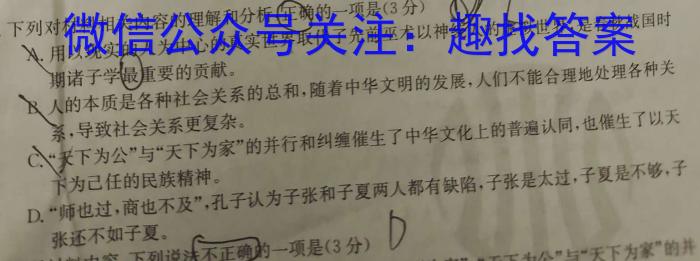 下列对材料相关内容的理解和分析,正确的一项是(3分)
微信公众号关注:趣找答案
A. 用以现实的人为中心的真实世界取代了先前巫术以神 战国时
期诸子学最重要的贡献。
B 人的本质是各种社会关系的总和,随着中华文明的发展,人们不能合理地处理各种关
系,导致社会关系更复杂。
C.“天下为公”与“天下为家”的并行和纠缠催生了中华文化上的普遍认同,也催生了以天
下为己任的民族精神。
D.“师也过,商也不及”,孔子认为子张和子夏两人都有缺陷,子张是太过,子夏是不够,子
张还不如子夏。
D
下列说法不正确的一项是(3分)
“天下为公”与“天下为家”的并